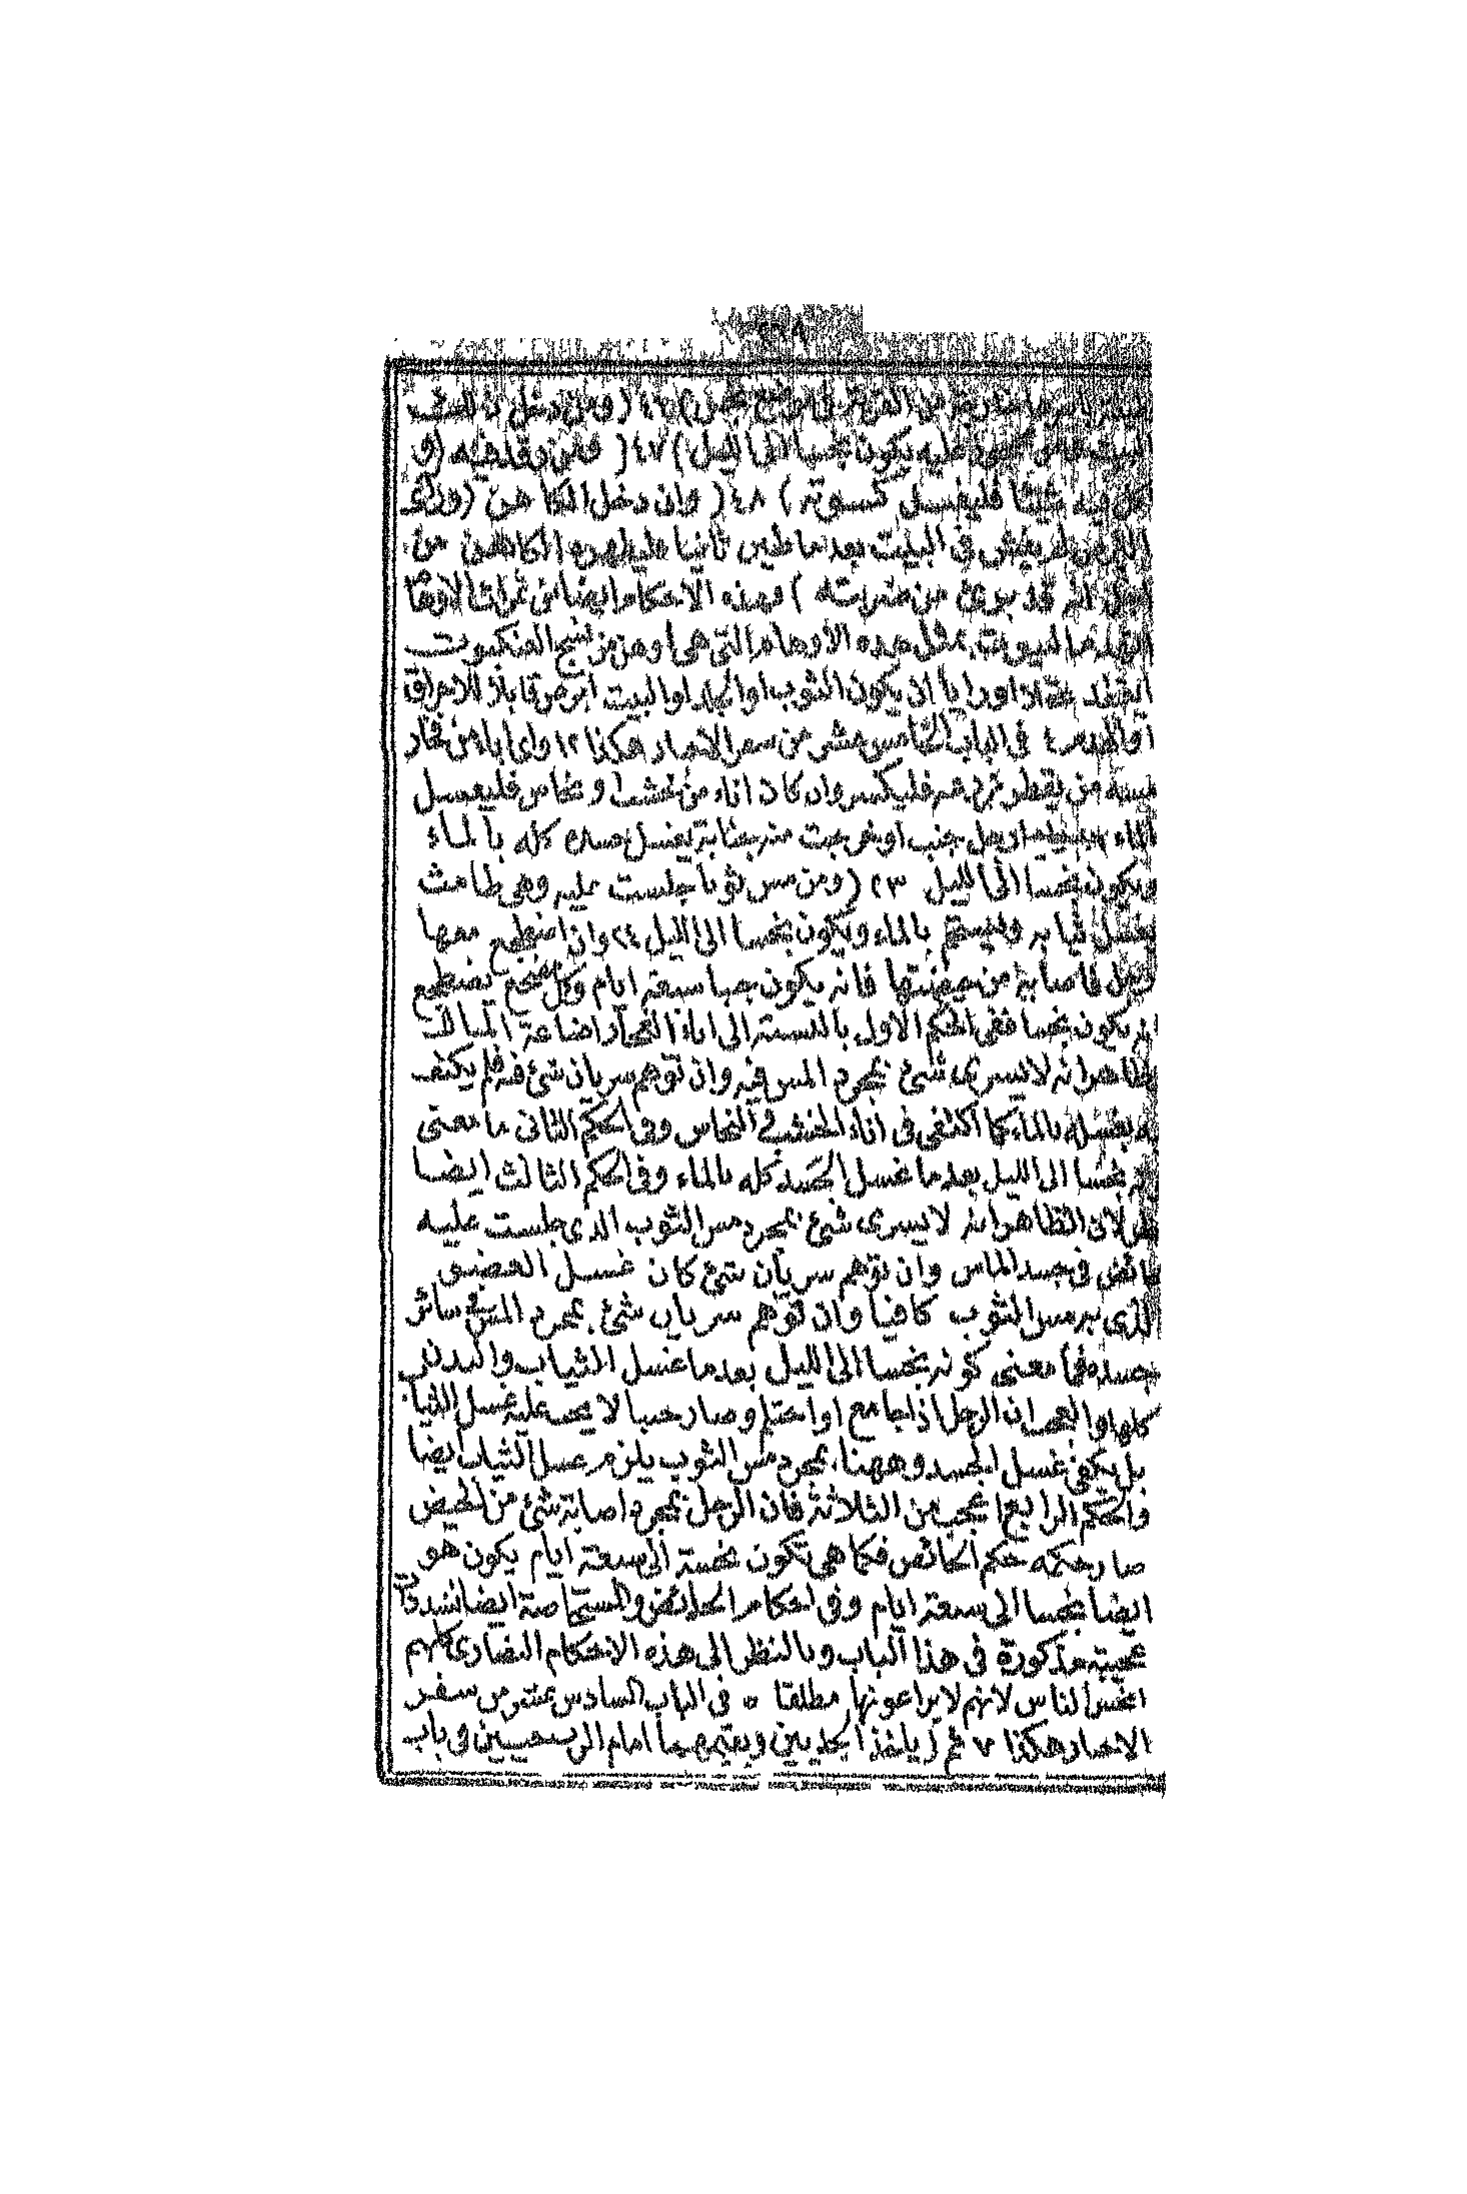 خارج القرية في موضع نجس) ٤٦ (ومن دخل ذلك البيت
عليه يكون نجسا الى الليل) ٤٧ ( ومن رقد فيه او
فيه شيئا فليغسل كسوته ) ٤٨ ( وان دخل الكاهن (ورأى
البرص لم يفش في البيت بعد ما طين ثانيا فليطهره الكاهن من
اجل انه قد برئ من ضربته ) فهذه الاحكام ايضا من ثمرات الاوهام
البيوت بمثل هذه الاوهام التي هي اوهن من نسج العنكبوت
ان يكون الثوب او الجلد او البيت ابرص قابلا للاحراق
او الهدم ٤ في الباب الخامس عشر من سفر الاحبار هكذا ١٢ واي اناء من فخار
يمسه من يقطر زرعه فليكسر وان كان اناء من خشب او نحاس فليغسل
بالماء رجل جنب او خرجت منه جنابة يغسل جسده كله بالماء
ويكون نجسا الى الليل ٢٣ (ومن مس ثوبا جلست عليه وهي طامث
يغسل ثيابه وليستحم بالماء ويكون نجسا الى الليل ٢٤ وان اضطجع معها
رجل فاصابه من حيضتها فانه يكون نجسا سبعة ايام وكل مضجع يضطجع
يكون نجسا ففي الحكم الاول بالنسبة الى اناء الفخار اضاعة المال
الظاهر انه لا يسري شئ بمجرد المس فيه وان توهم سريان شئ فيه فلم يكتف
بغسله بالماء كما اكتفى في اناء الخشب والنحاس وفي الحكم الثاني ما معنى
نجسا الى الليل بعد ما غسل الجسد كله بالماء وفي الحكم الثالث ايضا
لان الظاهر انه لا يسري شئ بمجرد مس الثوب الذي جلست عليه
حائض في جسد الماس وان توهم سريان شئ كان غسل العضو
الذي به مس الثوب كافيا وان توهم سريان شئ بمجرد المس في سائر
جسده فما معنى كونه نجسا الى الليل بعد ما غسل الثياب والبدن
كلها والعجب ان الرجل اذا جامع او احتلم وصار جنبا لا يجب عليه غسل الثياب
بل يكفي غسل الجسد وههنا بمجرد مس الثوب يلزم غسل الثياب ايضا
والحكم الرابع اعجب من الثلاثة فان الرجل بمجرد اصابة شئ من الحيض
صار حكمه حكم الحائض فكما هي تكون نجسة الى سبعة ايام يكون هو
ايضا نجسا الى سبعة ايام وفي احكام الحائض والمستحاضة ايضا تشددات
عجيبة مذكورة في هذا الباب وبالنظر الى هذه الاحكام النصارى كلهم
انجس الناس لانهم لا يراعونها مطلقا ٥ في الباب السادس عشر من سفر
الاحبار هكذا ٧ ثم ياخذ الجديين ويقيمهما امام الرب حيين في باب